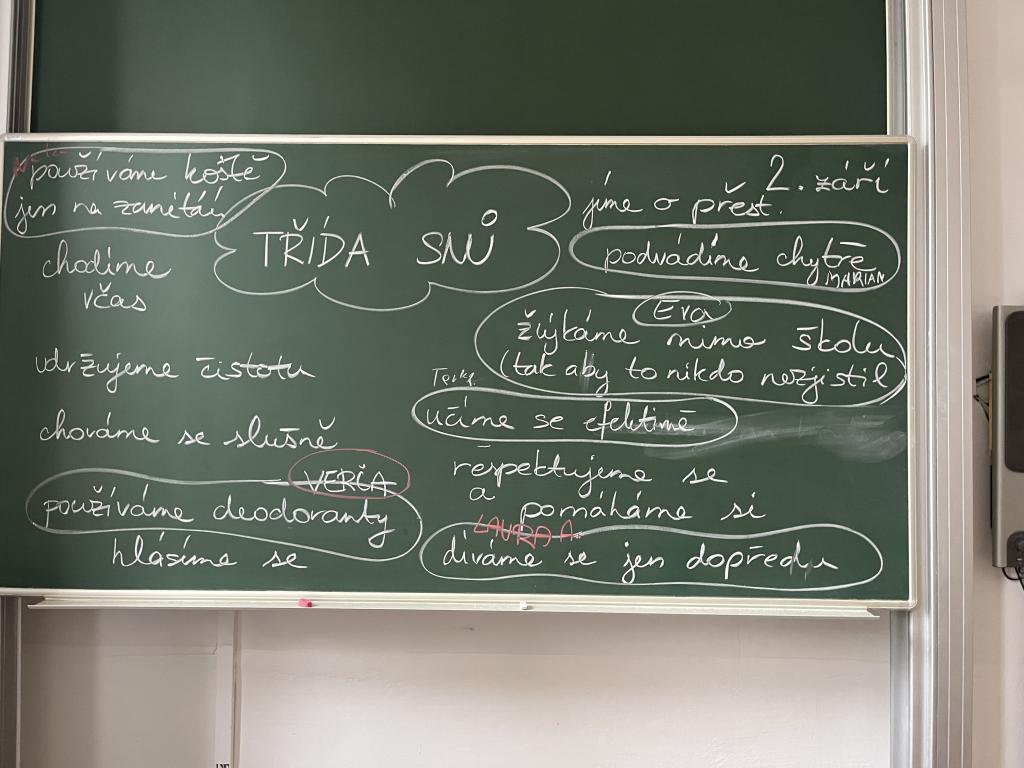 používáme koště
jen na zametání
chodíme
včas
udržujeme čistotu
chováme se slušně
VERČA
používáme deodoranty
hlásíme se
TŘÍDA SNŮ
2. září
jíme o přest.
podvádíme chytře
MARIAN
Eva
žvýkáme mimo školu
(tak aby to nikdo nezjistil
učíme se efektivně
respektujeme se
a pomáháme si
LAURA
díváme se jen dopředu